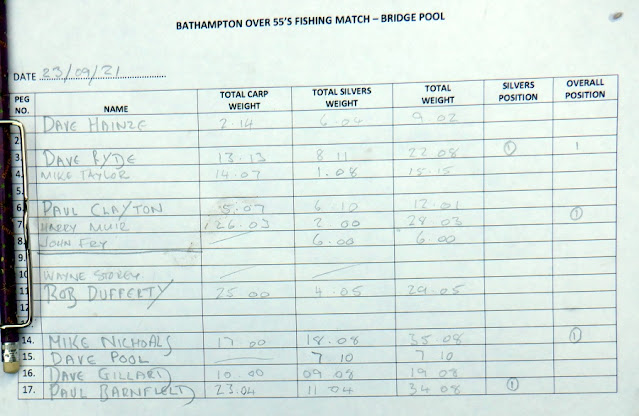 BATHAMPTON OVER 55'S FISHING MATCH – BRIDGE POOL
DATE 23/09/21
PEG NO. NAME TOTAL CARP WEIGHT TOTAL SILVERS WEIGHT TOTAL WEIGHT SILVERS POSITION OVERALL POSITION
DAVE HAINZE 2.14 6.04 9.02
2.
3. DAVE RYDE 13.13 8 11 22 08 1 1
4. MIKE TAYLOR 14.07 1.08
5.
6. PAUL CLAYTON 5.07 6.10 12.01
7. HARRY MUIR 26.03 2.00 28.03 1
8. JOHN FRY 6.00 6.00
9.
10 WAYNE STOREY
11 BOB DUFFERTY 25 00 4.05 29.05
14. MIKE NICHOLLS 17 00 18.08 35.08 1
15. DAVE POOL 7 10 7 10
16. DAVE GILLARD 10.00 09.08 19 08
17. PAUL BARNFIELD 23.04 11 04 34 08 1